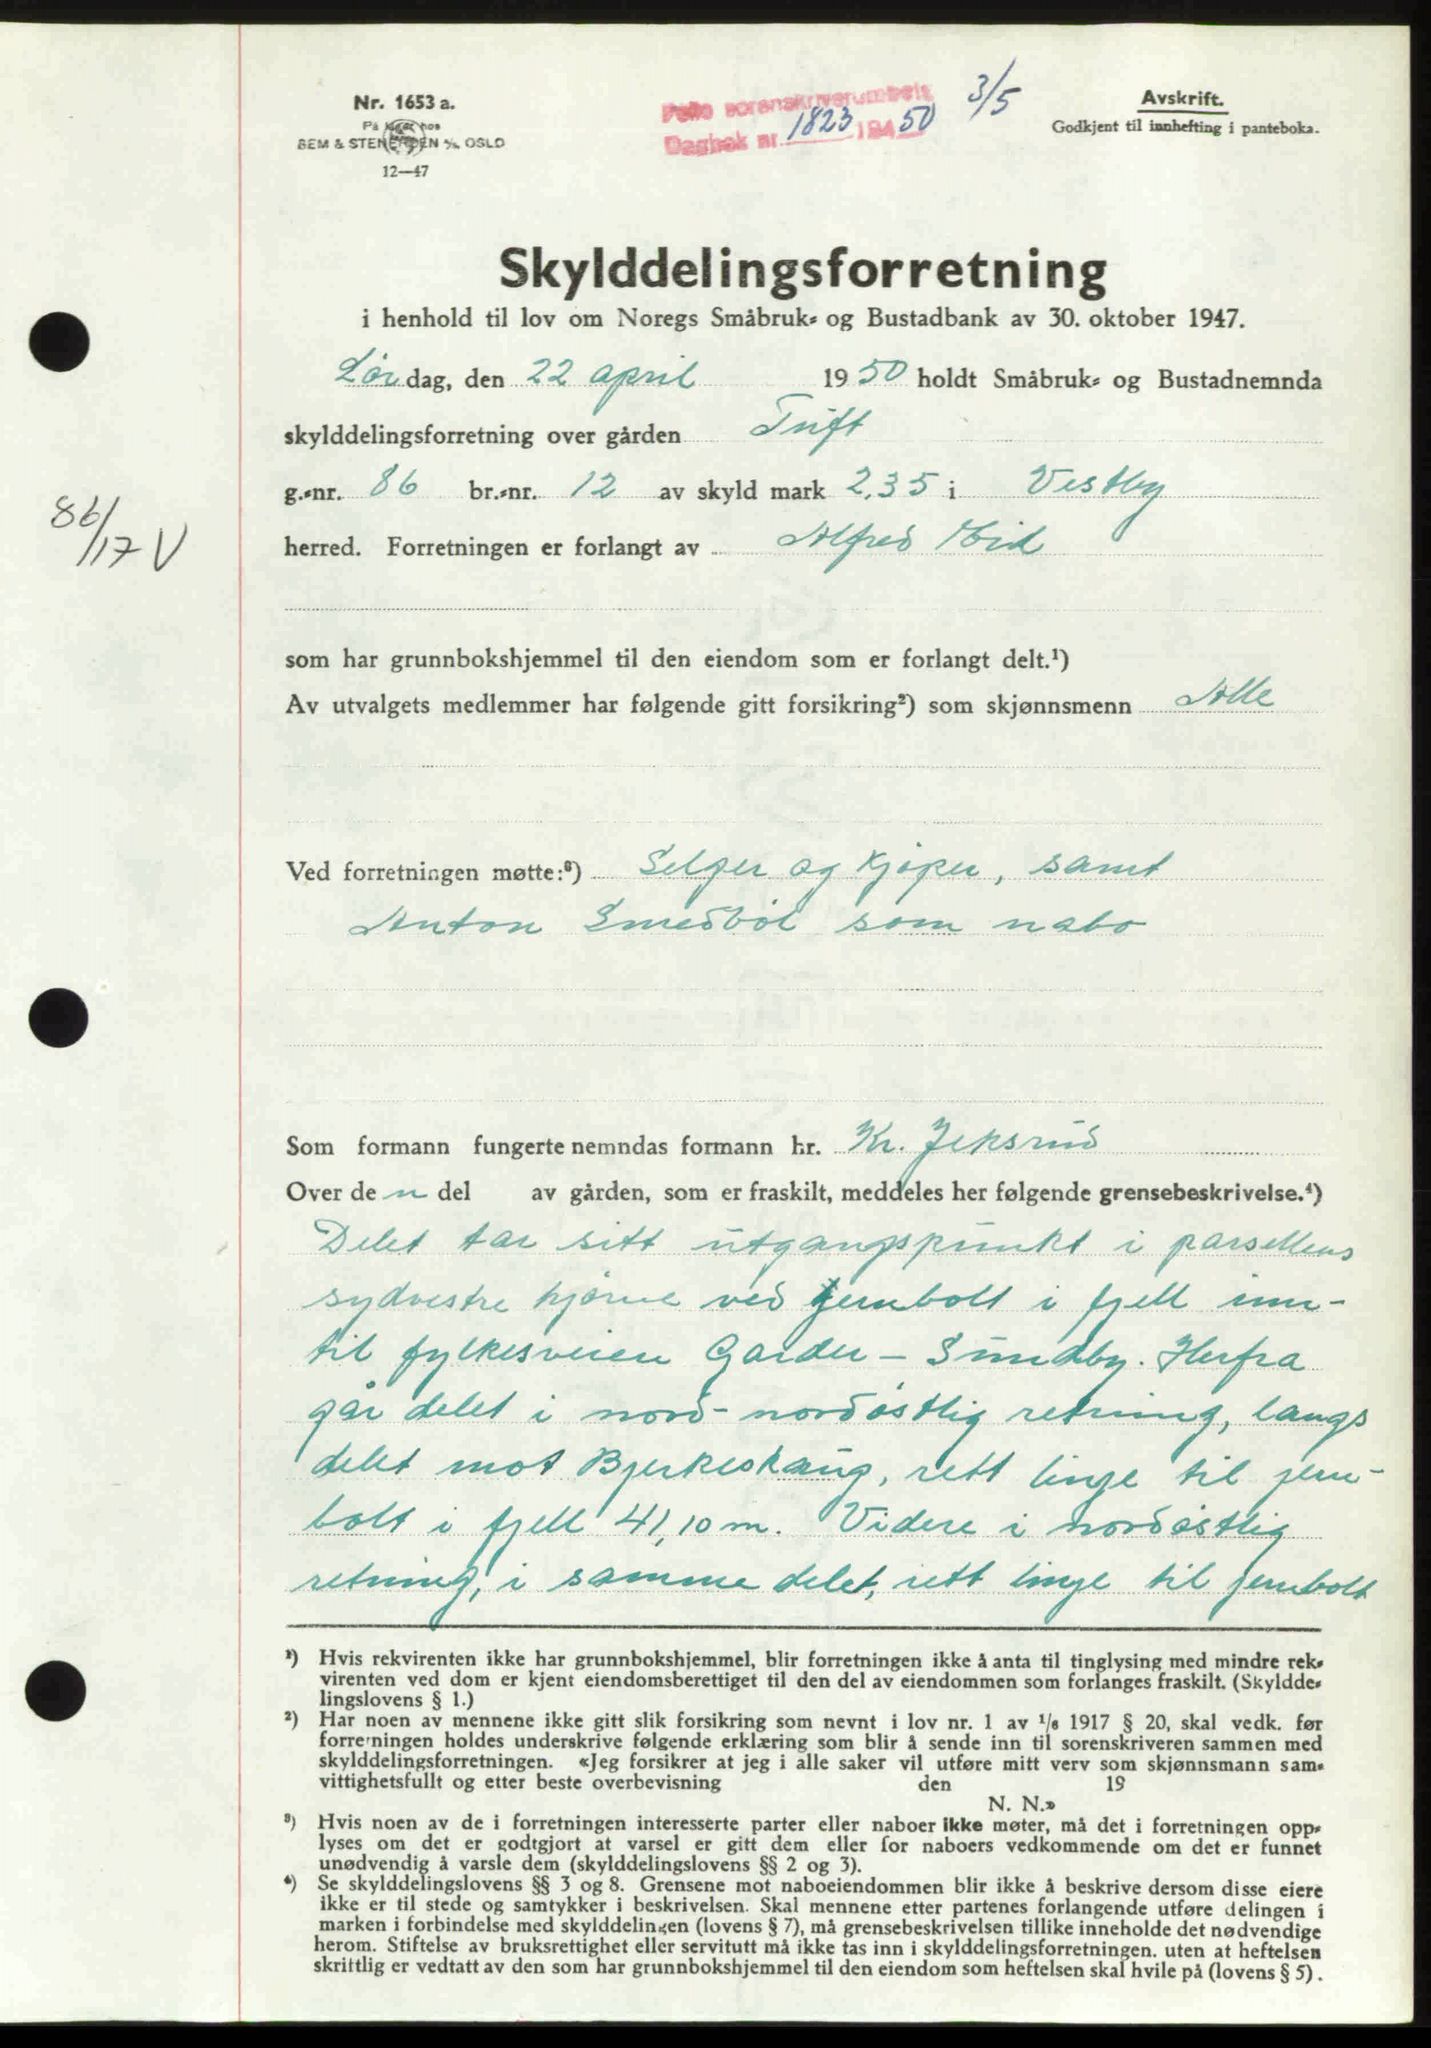 Nr. 1653 a.
På lager hos
SEM & STENERSEN A/S, OSLO
12—47
Follo sorenskriverembete
Dagbok nr. 1823 19450
3/5
Avskrift.
Godkjent til innhefting i panteboka.
Skylddelingsforretning
i henhold til lov om Noregs Småbruk- og Bustadbank av 30. oktober 1947.
Lördag, den 22 april 1950 holdt Småbruk- og Bustadnemnda
skylddelingsforretning over gården Tuft
g.-nr. 86 br.-nr. 12 av skyld mark 2,35 i Vestby
86/17 V
herred. Forretningen er forlangt av Alfred Eid
som har grunnbokshjemmel til den eiendom som er forlangt delt.¹)
Av utvalgets medlemmer har følgende gitt forsikring²) som skjønnsmenn Alle
Ved forretningen møtte:³) Selger og kjøper, samt
Anton Smedböl som nabo
Som formann fungerte nemndas formann hr. Kr. Jeksrud
Over den del av gården, som er fraskilt, meddeles her følgende grensebeskrivelse.⁴)
Delet tar sitt utgangspunkt i parsellens
sydvestre hjørne ved jernbolt i fjell inn-
til fylkesveien Garder – Sundby. Herfra
går delet i nord-nordöstlig retning, langs
delet mot Bjerkeskaug, rett linje til jern-
bolt i fjell 41,10 m. Videre i nordöstlig
retning, i samme delet, rett linje til jernbolt
¹) Hvis rekvirenten ikke har grunnbokshjemmel, blir forretningen ikke å anta til tinglysing med mindre rek-
virenten ved dom er kjent eiendomsberettiget til den del av eiendommen som forlanges fraskilt. (Skyldde-
lingslovens § 1.)
²) Har noen av mennene ikke gitt slik forsikring som nevnt i lov nr. 1 av 1/6 1917 § 20, skal vedk. før
forretningen holdes underskrive følgende erklæring som blir å sende inn til sorenskriveren sammen med
skylddelingsforretningen. «Jeg forsikrer at jeg i alle saker vil utføre mitt verv som skjønnsmann sam-
vittighetsfullt og etter beste overbevisning den 19
N. N.»
³) Hvis noen av de i forretningen interesserte parter eller naboer ikke møter, må det i forretningen opp-
lyses om det er godtgjort at varsel er gitt dem eller for naboers vedkommende om det er funnet
unødvendig å varsle dem (skylddelingslovens §§ 2 og 3).
⁴) Se skylddelingslovens §§ 3 og 8. Grensene mot naboeiendommen blir ikke å beskrive dersom disse eiere
ikke er til stede og samtykker i beskrivelsen. Skal mennene etter partenes forlangende utføre delingen i
marken i forbindelse med skylddelingen (lovens § 7), må grensebeskrivelsen tillike inneholde det nødvendige
herom. Stiftelse av bruksrettighet eller servitutt må ikke tas inn i skylddelingsforretningen, uten at heftelsen
skriftlig er vedtatt av den som har grunnbokshjemmel til den eiendom som heftelsen skal hvile på (lovens § 5).